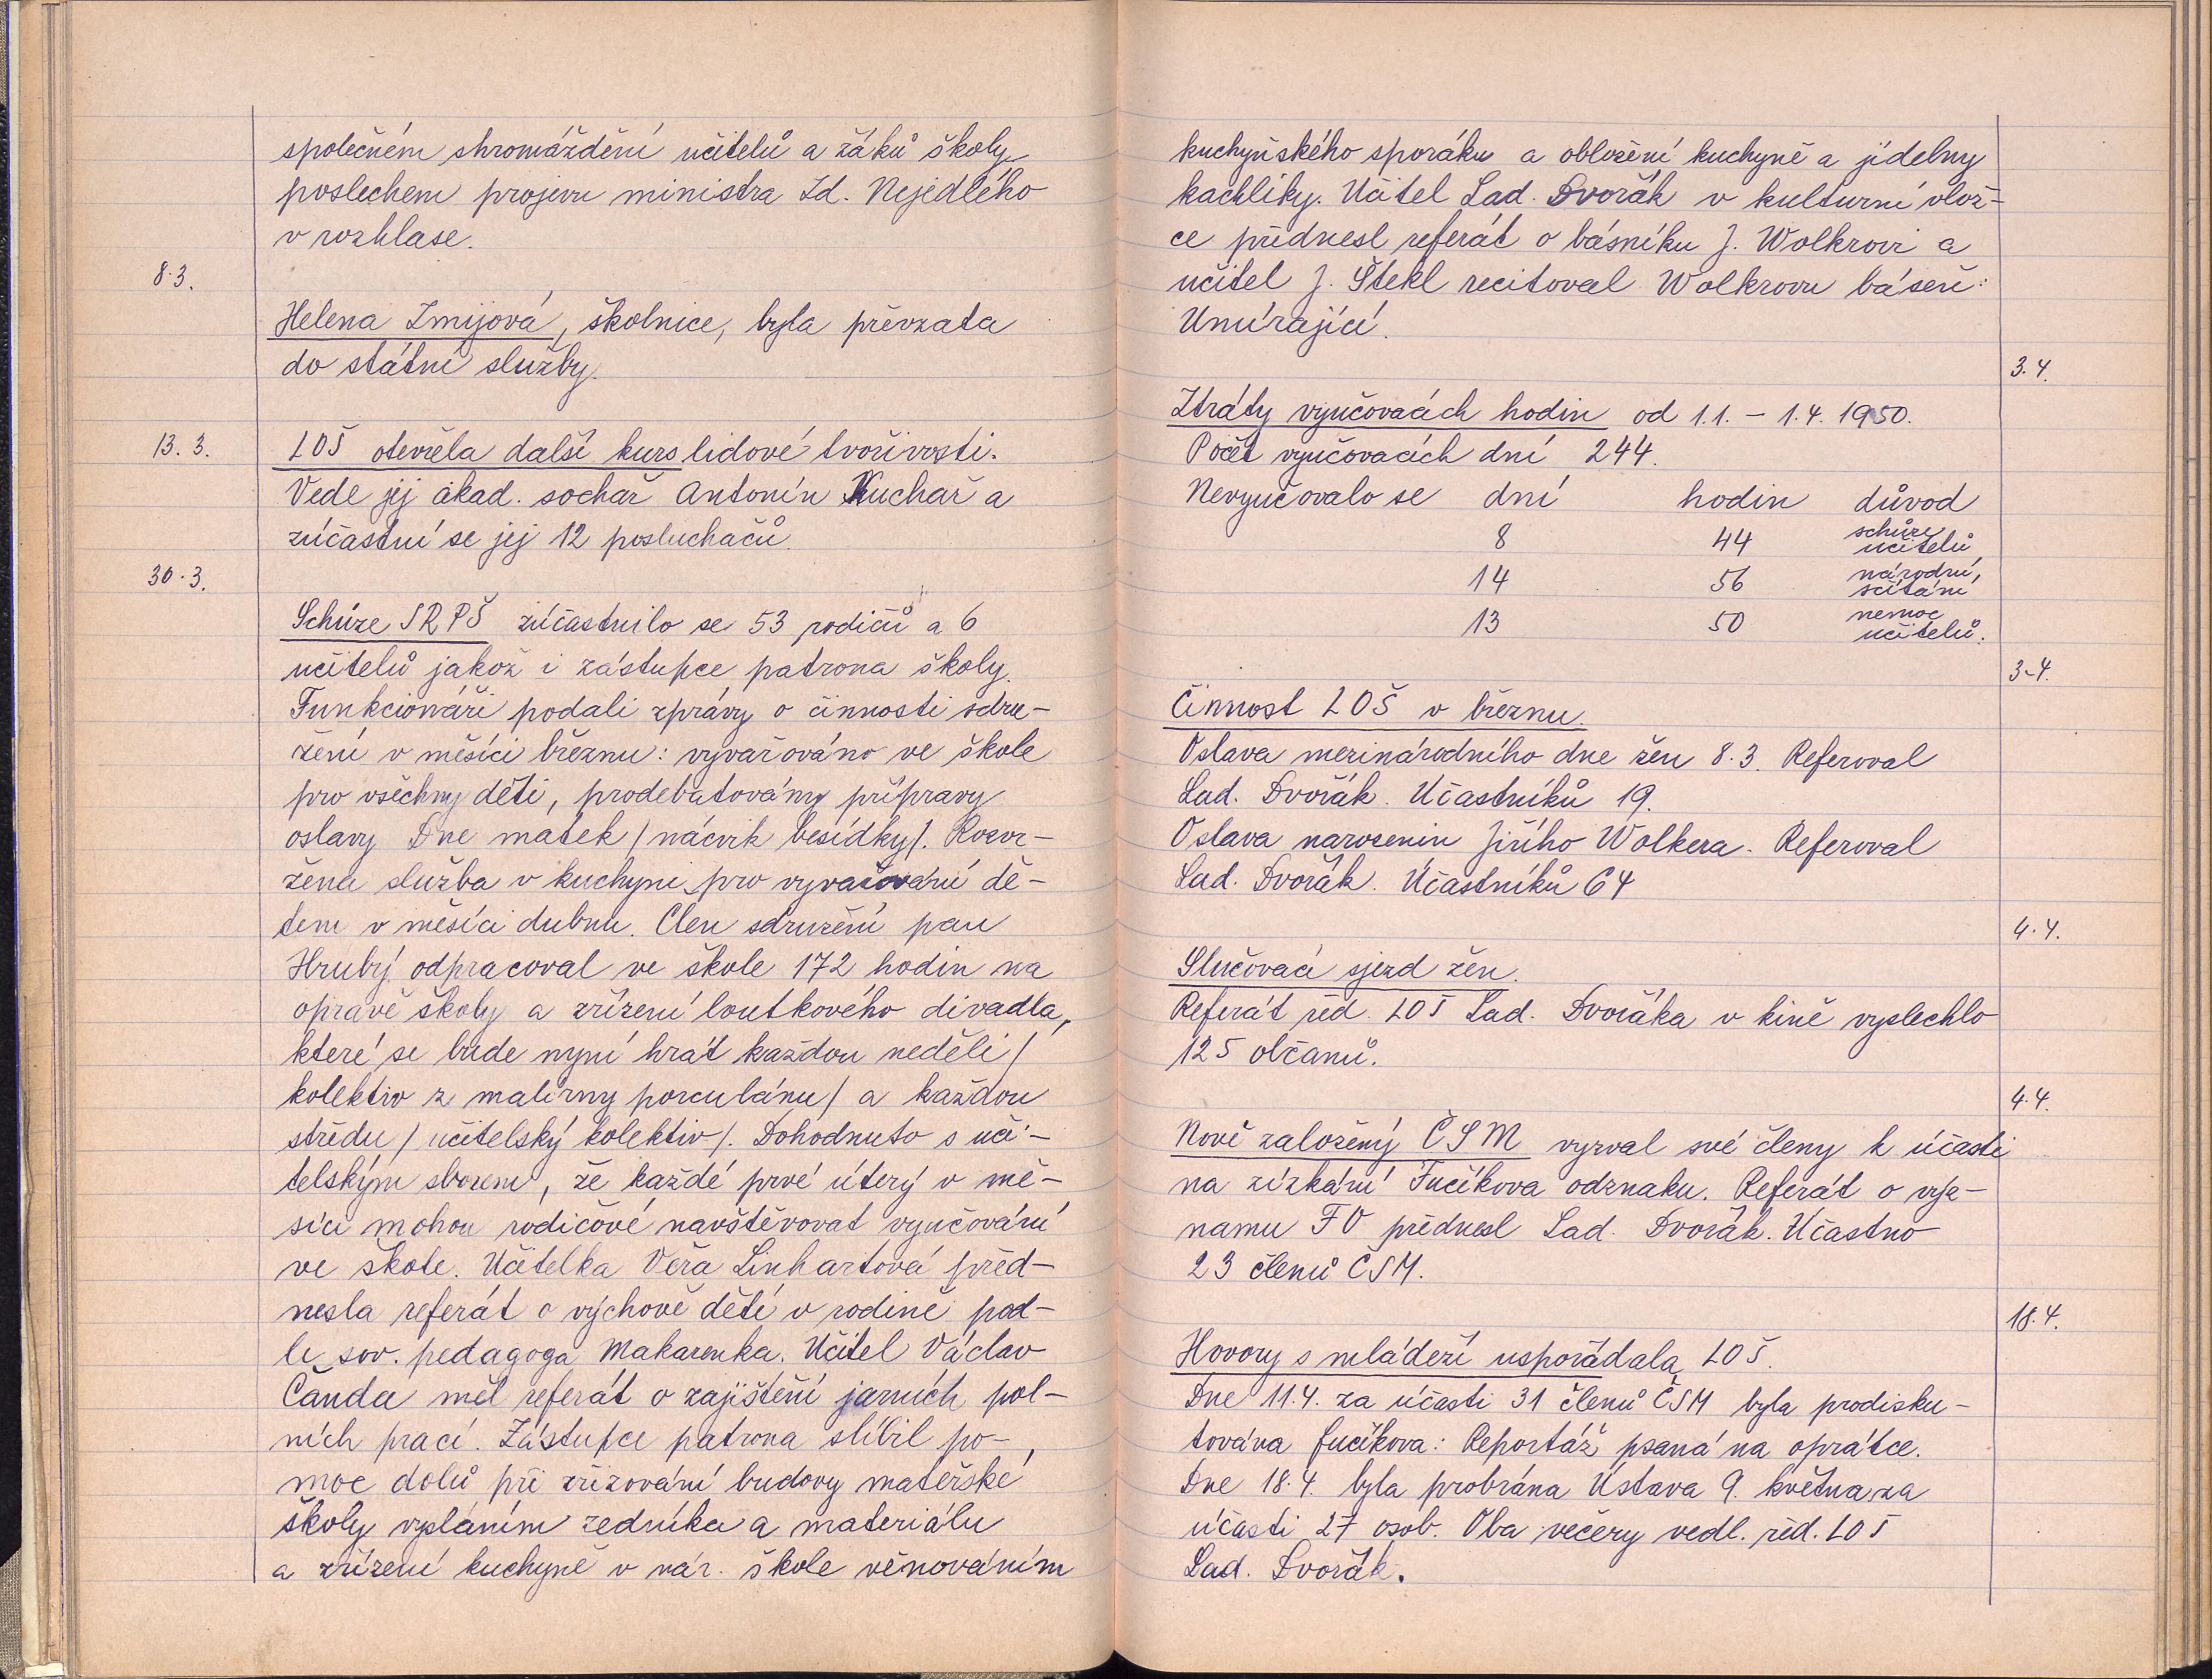 společném shromáždění učitelů a žáků školy
poslechem projevu ministra Zd. Nejedlého
v rozhlase.
8.3.
Helena Zmijová, školnice, byla převzata
do státní služby.
13. 3.
LOŠ otevřela další kurs lidové tvořivosti.
Vede jej akad. sochař Antonín Kuchař a
zúčastní se jej 12 posluchačů.
30.3.
Schůze SRPŠ zúčastnilo se 53 rodičů a 6
učitelů jakož i zástupce patrona školy.
Funkcionáři podali zprávy o činnosti sdru-
žení v měsíci březnu: vyvařováno ve škole
pro všechny děti, prodebatovány přípravy
oslavy Dne matek /nácvik besídky/. Rozvr-
žena služba v kuchyni pro vyvařování dě-
tem v měsíci dubnu. Člen sdružení pan
Hrubý odpracoval ve škole 172 hodin na
opravě školy a zřízení loutkového divadla,
které se bude nyní hrát každou neděli /
kolektiv z malírny porculánu/ a každou
středu /učitelský kolektiv/. Dohodnuto s uči-
telským sborem, že každé prvé úterý v mě-
síci mohou rodičové navštěvovat vyučování
ve škole. Učitelka Věra Linhartová před-
nesla referát o výchově dětí v rodině pod-
le sov. pedagoga Makarenka. Učitel Václav
Čanda měl referát o zajištění jarních pol-
ních prací. Zástupce patrona slíbil po-
moc dolů při zřizování budovy mateřské
školy vysláním zedníka a materiálu
a zřízení kuchyně v nár. škole věnováním
kuchyňského sporáku a obložení kuchyně a jídelny
kachlíky. Učitel Lad. Dvořák v kulturní vlož-
ce přednesl referát o básníku J. Wolkrovi a
učitel J. Štekl recitoval Wolkrovu báseň:
Umírající.
3.4.
Ztráty vyučovacích hodin od 1.1. - 1.4. 1950.
Počet vyučovacích dní 244.
Nevyučovalo se dní hodin důvod
8 44 schůze učitelů,
14 56 národní, sčítání
13 50 nemoc učitelů.
3-4.
Činnost LOŠ v březnu.
Oslava mezinárodního dne žen 8.3. Referoval
Lad. Dvořák. Účastníků 19.
Oslava narozenin Jiřího Wolkera. Referoval
Lad. Dvořák. Účastníků 64
4.4.
Slučovací sjezd žen.
Referát řed. LOŠ Lad. Dvořáka v kině vyslechlo
125 občanů.
4.4.
Nově založený ČSM vyzval své členy k účasti
na získání Fučíkova odznaku. Referát o výz-
namu FO přednesl Lad. Dvořák. Účastno
23 členů ČSM.
18.4.
Hovory s mládeží uspořádala LOŠ.
Dne 11.4. za účasti 31 členů ČSM byla prodisku-
tována Fučíkova: Reportáž psaná na oprátce.
Dne 18.4. byla probrána Ústava 9. května za
účasti 27 osob. Oba večery vedl. řed. LOŠ
Lad. Dvořák.